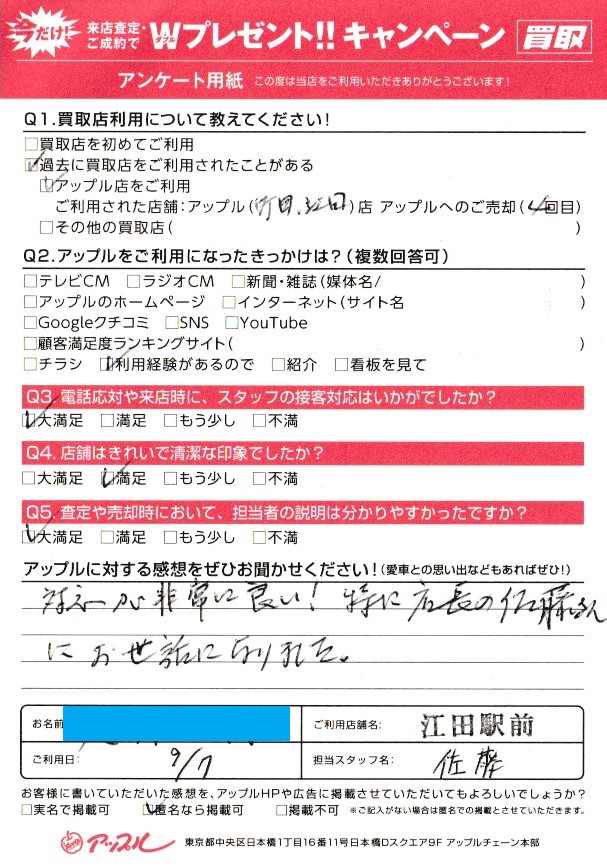 今だけ! 来店査定・ご成約で Wダブルプレゼント!! キャンペーン 買取
アンケート用紙 この度は当店をご利用いただきありがとうございます!
Q1.買取店利用について教えてください!
□買取店を初めてご利用
☑過去に買取店をご利用されたことがある
☑アップル店をご利用
ご利用された店舗:アップル(町田、江田)店 アップルへのご売却(4回目)
□その他の買取店( )
Q2.アップルをご利用になったきっかけは?(複数回答可)
□テレビCM □ラジオCM □新聞・雑誌(媒体名/ )
□アップルのホームページ □インターネット(サイト名 )
□Googleクチコミ □SNS □YouTube
□顧客満足度ランキングサイト( )
□チラシ ☑利用経験があるので □紹介 □看板を見て
Q3.電話応対や来店時に、スタッフの接客対応はいかがでしたか?
☑大満足 □満足 □もう少し □不満
Q4.店舗はきれいで清潔な印象でしたか?
□大満足 ☑満足 □もう少し □不満
Q5.査定や売却時において、担当者の説明は分かりやすかったですか?
☑大満足 □満足 □もう少し □不満
アップルに対する感想をぜひお聞かせください!(愛車との思い出などもあればぜひ!)
対応が非常に良い!特に店長の佐藤さん
にお世話になりました。
お名前 ご利用店舗名: 江田駅前
ご利用日: 9/7 担当スタッフ名: 佐藤
お客様に書いていただいた感想を、アップルHPや広告に掲載させていただいてもよろしいでしょうか?
□実名で掲載可 ☑匿名なら掲載可 □掲載不可 ※ご記入がない場合は匿名での掲載とさせていただきます。
アップル 東京都中央区日本橋1丁目16番11号日本橋Dスクエア9F アップルチェーン本部